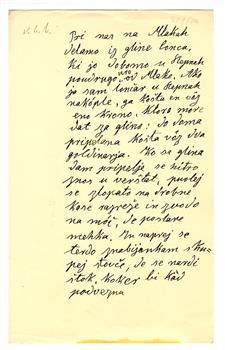 Pri nas na Mlakah
delamo iz gline lonca,
ki jo dobomo u Repnah
poudrugo uro od Mlake. Ako
jo sam lončar u Repnah
nakople, ga košta en vòz
eno krono, ktoro more
dat za glino; jo doma
pripelana košta vòz dva
goldinarja. Ko se glina
dam pripelje se hitro
znos u verštat, potlej
se zlopato na drobne
kose narezje in z vodo
na móč, de postane
mehka. In naprej se
terdo znabijankam skup
pej stouče, de se nardi
štok, koker bi kàd
povezna